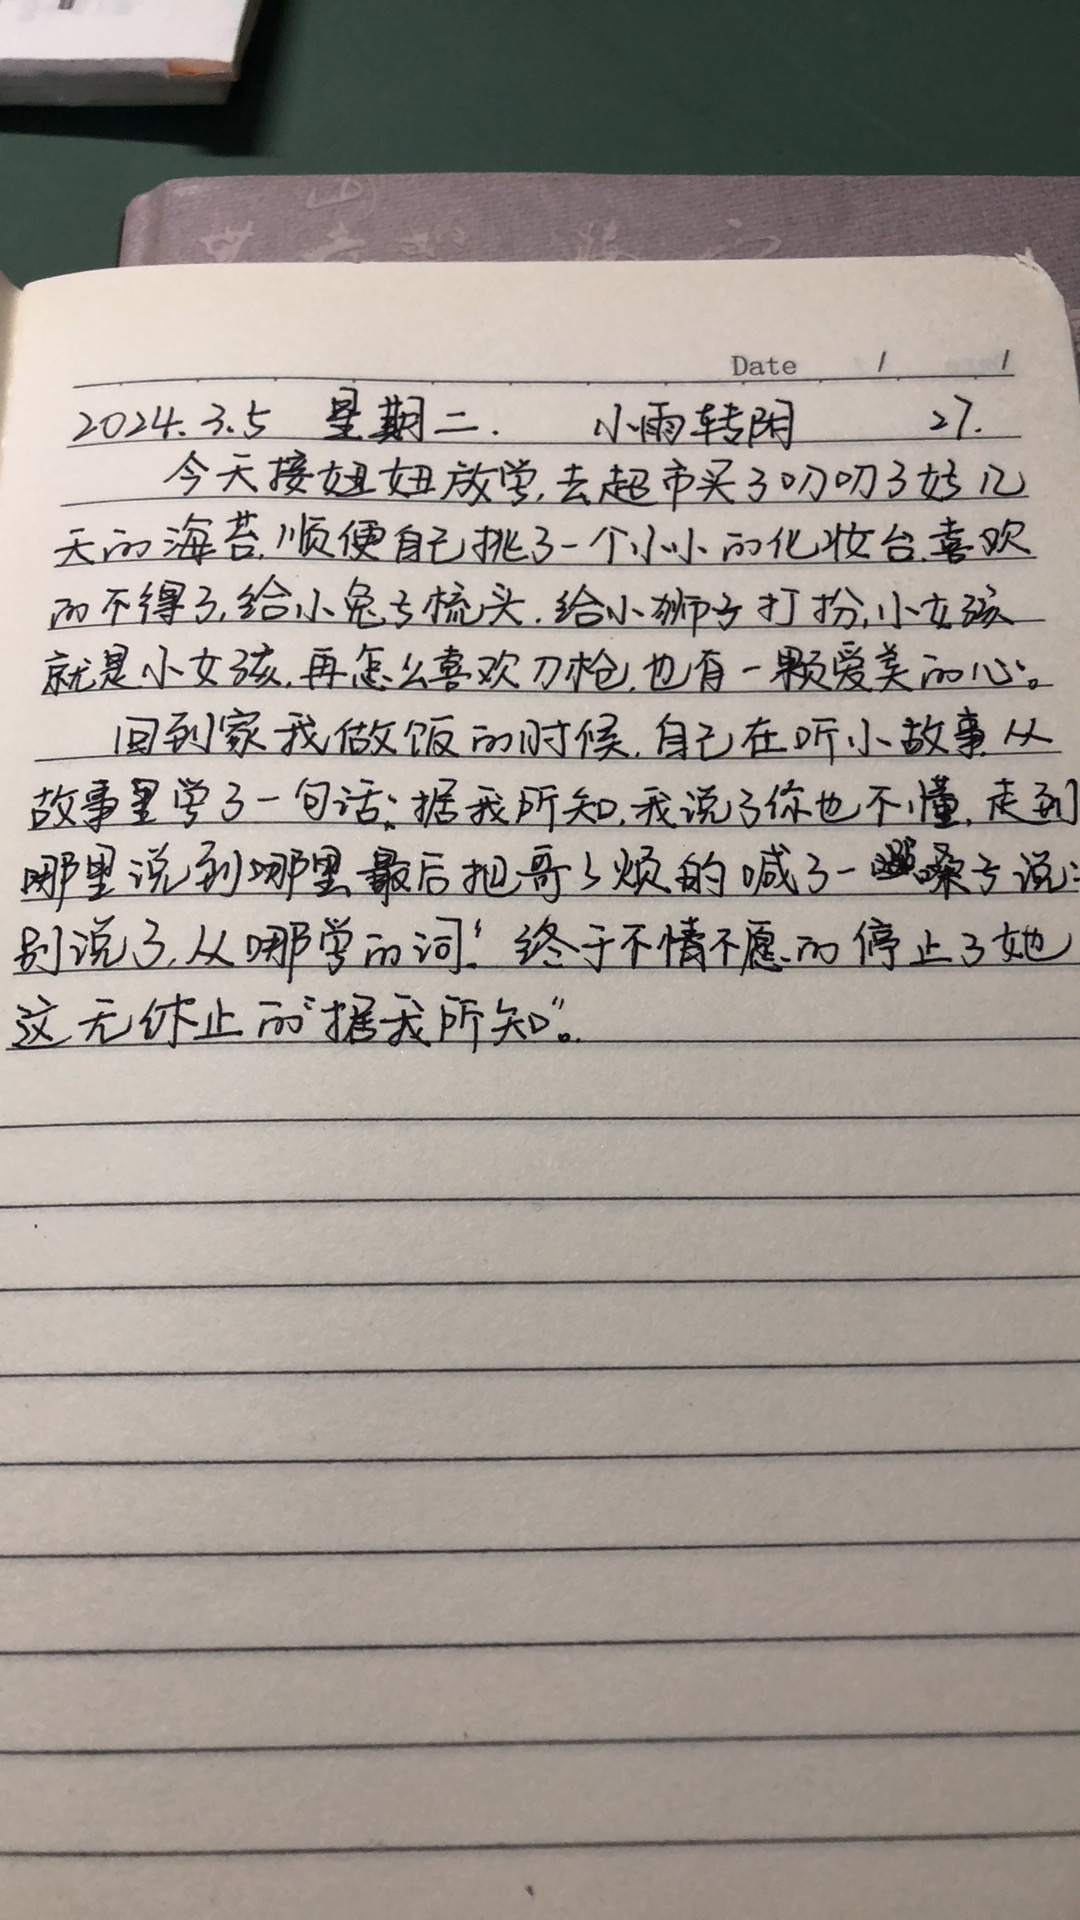 Date / /
2024.3.5 星期二. 小雨转阴 27.
今天接妞妞放学,去超市买了叨叨了好几
天的海苔,顺便自己挑了一个小小的化妆台,喜欢
的不得了,给小兔子梳头,给小狮子打扮,小女孩
就是小女孩,再怎么喜欢刀枪,也有一颗爱美的心。
回到家我做饭的时候,自己在听小故事,从
故事里学了一句话:据我所知,我说了你也不懂,走到
哪里说到哪里,最后把哥哥烦的喊了一嗓子说:
别说了,从哪学的词!终于不情不愿的停止了她
这无休止的“据我所知”。